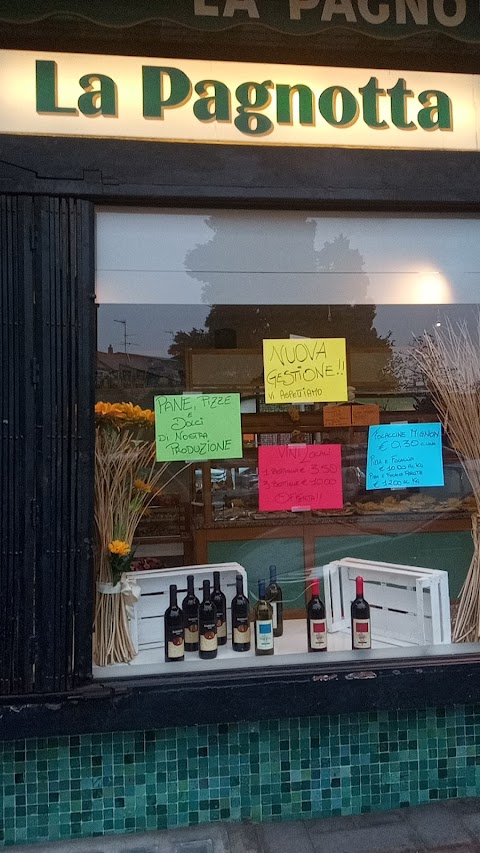 LA PAGNO
La Pagnotta
NUOVA
GESTIONE!!
VI ASPETTIAMO
PANE, PIZZE
E
DOLCI
DI NOSTRA
PRODUZIONE
VINI LOCALI
1 BOTTIGLIA € 3.50
3 BOTTIGLIE € 10.00
OFFERTA!!
FOCACCINE MIGNON
€ 0.30
PIZZA E FOCACCIA
€ 10.00 AL KG
PIZZA E FOCACCIA FARCITA
€ 12.00 AL KG